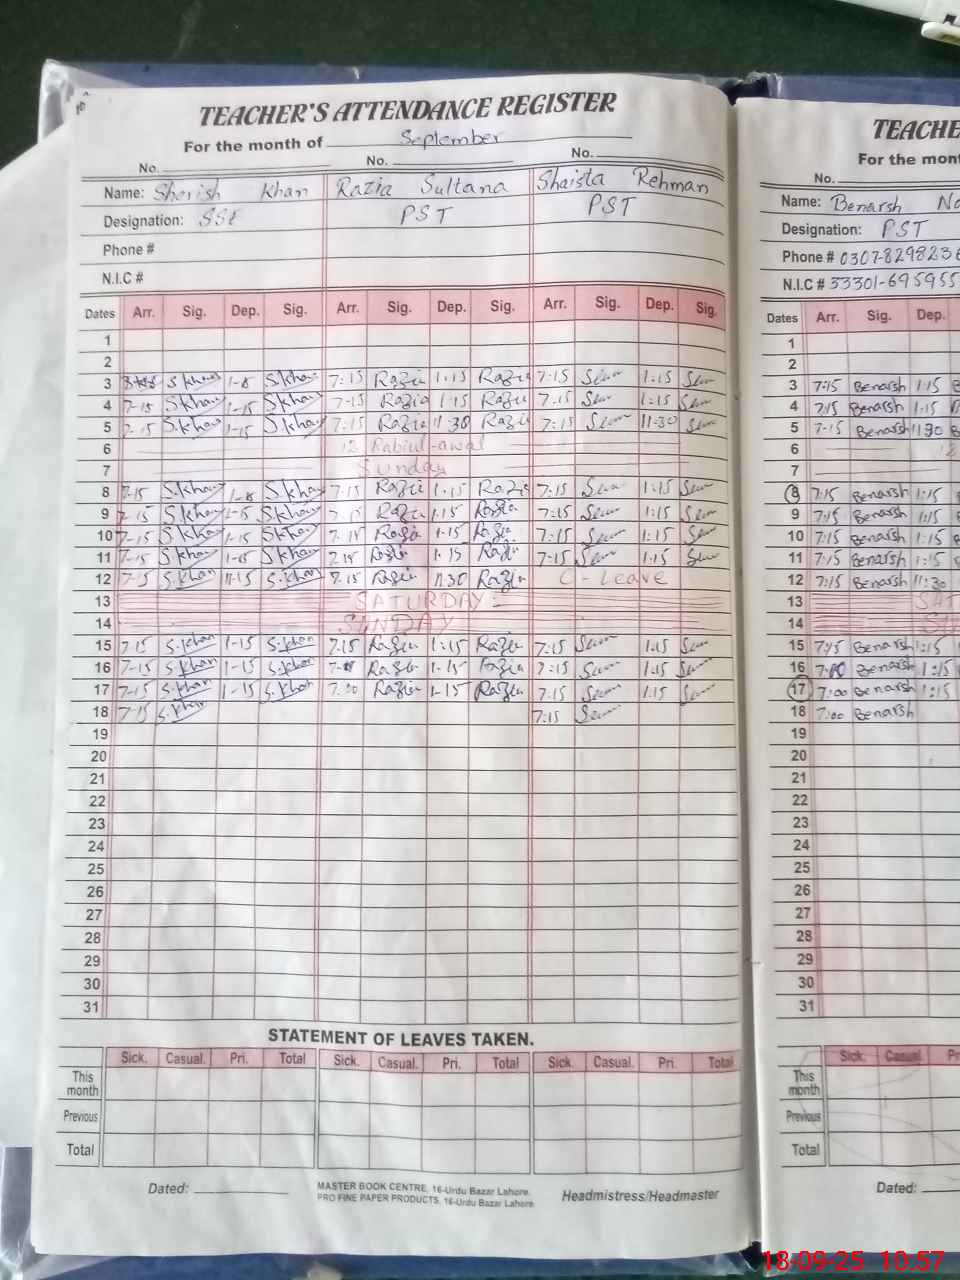 TEACHER'S ATTENDANCE REGISTER
For the month of September
No. No. No.
Name: Sherish Khan Razia Sultana Shaista Rehman
Designation: SSE PST PST
Phone #
N.I.C #
Dates Arr. Sig. Dep. Sig. Arr. Sig. Dep. Sig. Arr. Sig. Dep. Sig.
1
2
3 S.khan 1-15 S.khan 7:15 Razia 1:15 Razia 7:15 1:15
4 7-15 S.khan 1-15 S.khan 7-15 Razia 1-15 Razia 7:15 1:15
5 7-15 S.khan 1-15 S.khan 7:15 Razia 11:30 Razia 7:15 11-30
6 12 Rabiul-awal
7 Sunday
8 7-15 S.khan S.khan 7-15 Razia 1-15 Razia 7:15 1:15
9 7-15 S.khan 1-15 S.khan 7-15 Razia 1-15 Razia 7:15 1:15
10 7-15 S.khan 1-15 S.khan 7-15 Razia 1-15 Razia 7:15 1:15
11 7-15 S.khan 1-15 S.khan 7.15 Razia 1-15 Razia 7:15 1:15
12 S.khan 11-15 S.khan 7.15 Razia 11:30 Razia C-Leave
13 SATURDAY
14 SUNDAY
15 7-15 S.khan 1-15 S.khan 7.15 Razia 1:15 Razia 7:15 1:15
16 7-15 S.khan 1-15 S.khan Razia 1-15 Razia 7:15 1:15
17 7-15 S.khan 1-15 S.khan 7:00 Razia 1-15 Razia 7:15 1:15
18 7-15 S.khan 7:15
19
20
21
22
23
24
25
26
27
28
29
30
31
STATEMENT OF LEAVES TAKEN.
Sick. Casual. Pri. Total Sick. Casual. Pri. Total Sick. Casual. Pri. Total
This month
Previous
Total
Dated:
MASTER BOOK CENTRE, 16-Urdu Bazar Lahore.
PRO FINE PAPER PRODUCTS, 16-Urdu Bazar Lahore.
Headmistress/Headmaster
TEACHE
For the mont
No.
Name: Benarsh
Designation: PST
Phone # 0307-829823
N.I.C # 33301-695955
Dates Arr. Sig. Dep.
1
2
3 7:15 Benarsh 1:15
4 7:15 Benarsh 1:15
5 7-15 Benarsh 11:30
6 12
7
8 7:15 Benarsh 1:15
9 7:15 Benarsh 1:15
10 7:15 Benarsh 1:15
11 7:15 Benarsh 1:15
12 7:15 Benarsh 11:30
13 SAT
14
15 7:15 Benarsh 1:15
16 Benarsh 1:15
17 7:00 Benarsh 1:15
18 7:00 Benarsh
19
20
21
22
23
24
25
26
27
28
29
30
31
Sick. Casual. Pr
This month
Previous
Total
Dated:
18-09-25 10.57